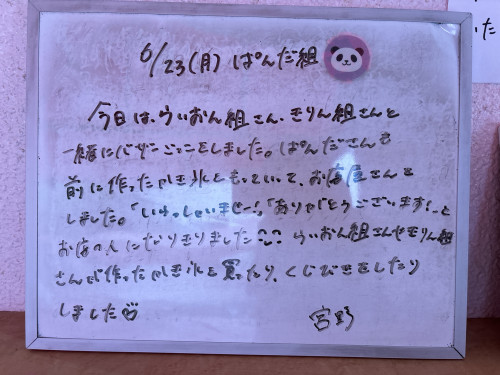 6/23(月) ぱんだ組
今日は、らいおん組さん、きりん組さんと
一緒にバザーごっこをしました。ぱんださんも
前に作ったかき氷をもっていて、お店屋さんを
しました。「いらっしゃいませー!」「ありがとうございます!」と
お店の人になりきりました らいおん組さんやきりん組
さんが作ったかき氷を買ったり、くじびきをしたり
しました
宮野
た